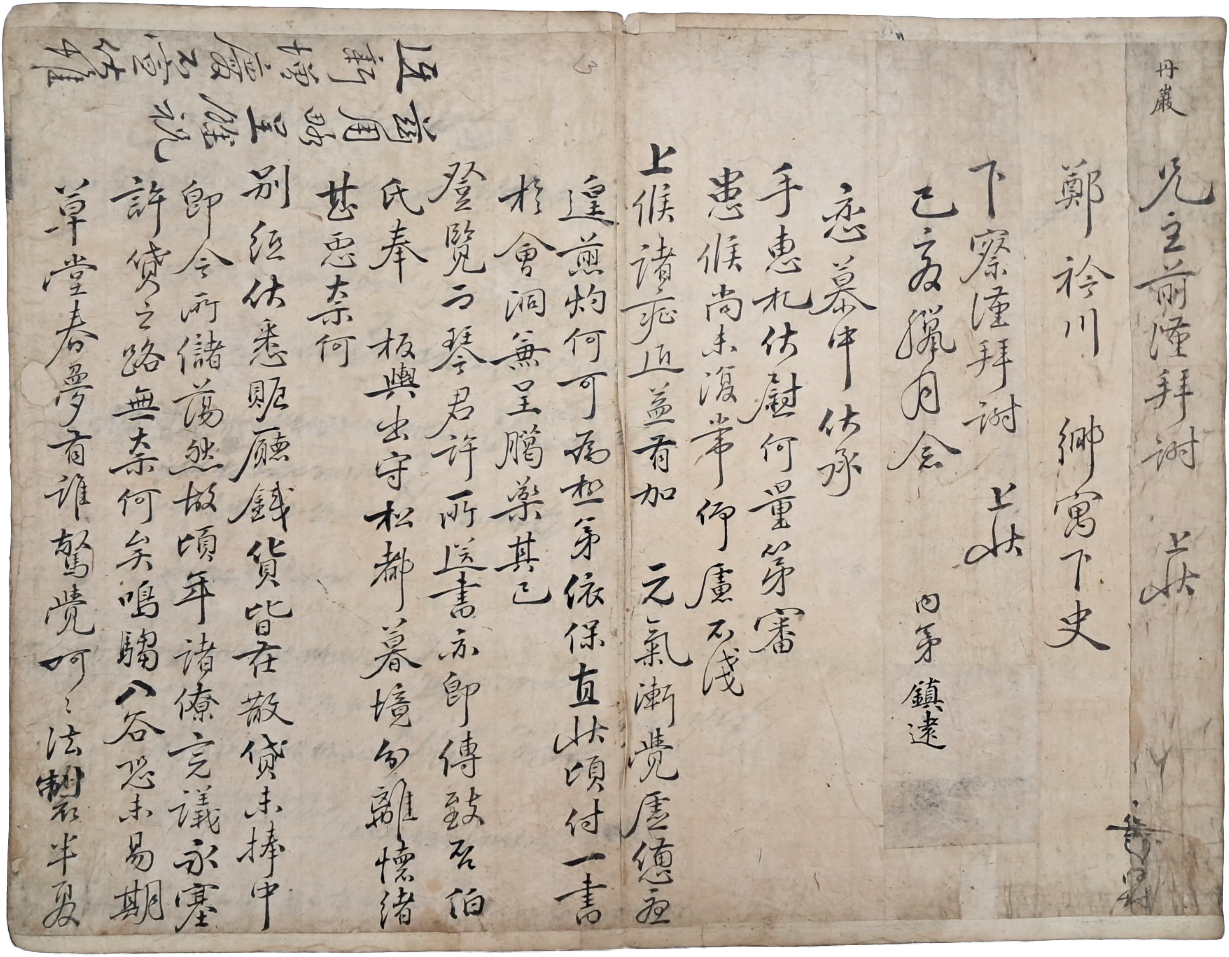 丹巖
兄主前 謹拜謝 上狀
鄭衿川 鄉寓下史
下察 謹拜謝 上狀
己亥臘月念 內弟 鎮逑
戀慕中 伏承
手惠札伏慰何量第審
患候尚未復常仰慮不淺
上候諸症近益有加 元氣漸覺虛憊
遑煎灼何可爲極弟依保直狀頃付一書
於會洞兼呈臈藥其已
登覽而琴君許所送書亦卽傳致否伯
氏奉 板輿出守松都暮境分離懷緒
甚惡奈何
別紙伏悉賑廳錢貨皆在散貸未捧中
卽今所儲蕩然故頃年諸僚完議永塞
許貸之路無奈何矣鳴騶入谷恐未易期
草堂春夢有誰驚覺呵〻法製半夏